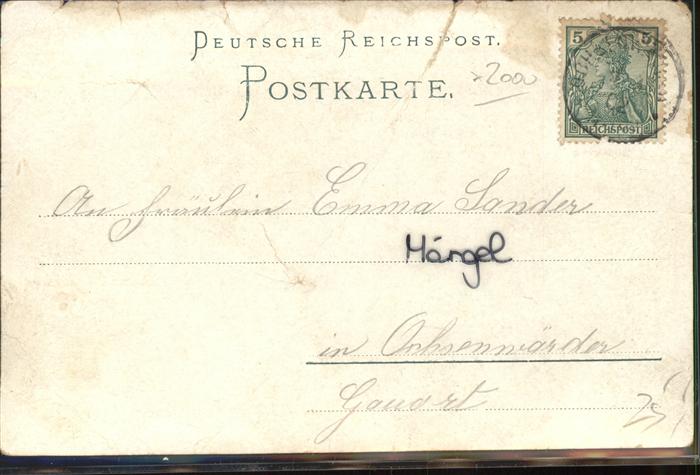 DEUTSCHE REICHSPOST.
POSTKARTE.
2000
5 5
REICHSPOST
An Fräulein Emma Sander
Mängel
in Ochsenwärder